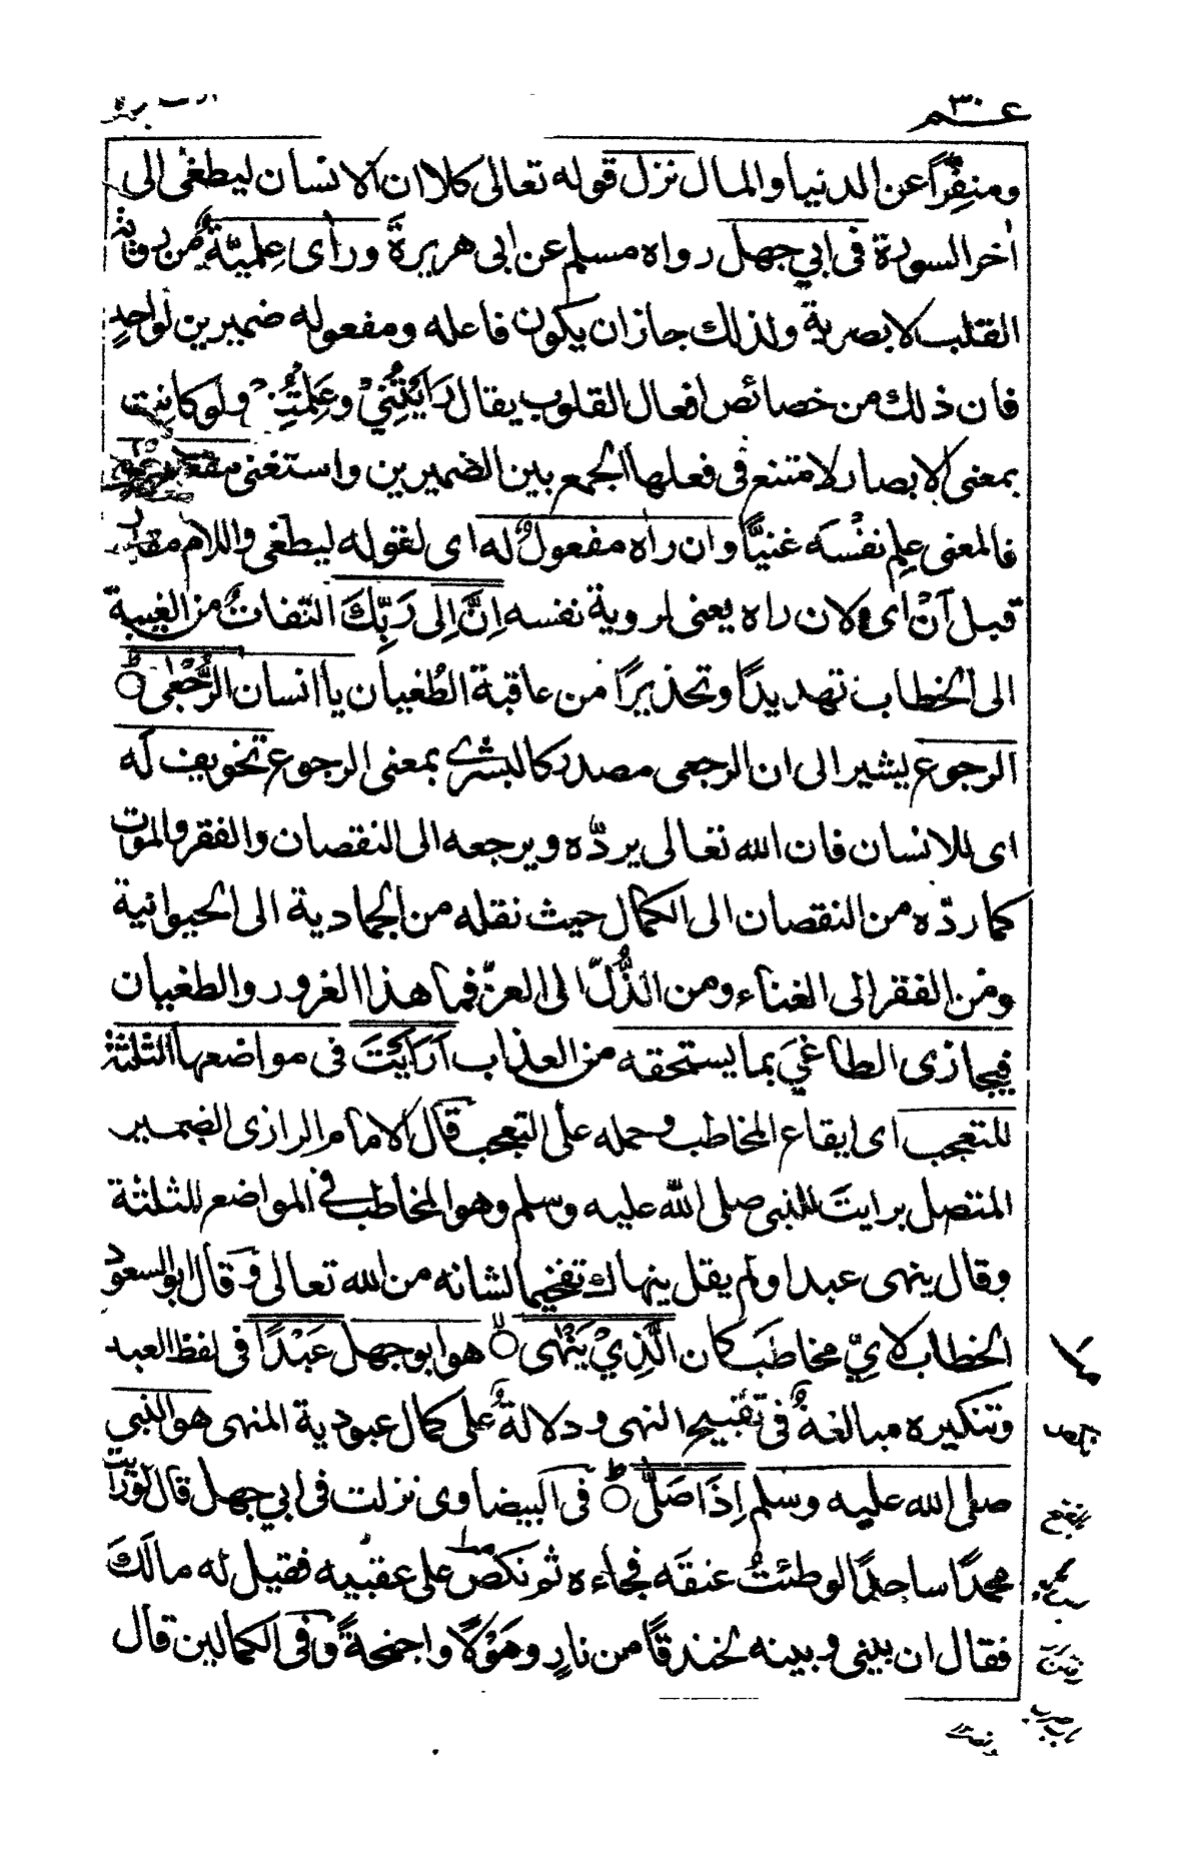 عــم ٣٠
ومنفِّراً عن الدنيا والمال نزل قوله تعالى كلا ان الانسان ليطغى الى
اٰخر السورة فى ابي جهل رواه مسلم عن ابى هريرة ورأى عِلميّةٌ من رؤية
القلب لا بصرية ولذلك جاز ان يكون فاعله ومفعوله ضميرين لواحدٍ
فان ذلك من خصائص افعال القلوب يقال رَاَيْتُنِيْ وعَلِمْتُنِيْ ولو كانت
بمعنى الابصار لامتنع فى فعلها الجمع بين الضميرين واستغنى
فالمعنى علِم نفْسَه غنيًّا وان راٰه مفعولٌ له اى لقوله ليطغى واللام مقدر
قبل اَنْ اى ولان راٰه يعنى لروية نفسه اِنَّ اِلٰى رَبِّكَ التفاتٌ من الغيبة
الى الخطاب تهديدًا وتحذيرًا من عاقبة الطُغيان يا انسان الرُّجْعٰى
الرجوع يشير الى ان الرجعى مصدر كالبشرٰے بمعنى الرجوع تخويف له
اى للانسان فان الله تعالى يردّه ويرجعه الى النقصان والفقر والموت
كما ردّه من النقصان الى الكمال حيث نقله من الجمادية الى الحيوانية
ومن الفقر الى الغناء ومن الذُّلّ الى العزّ فما هذا الغرور والطغيان
فيجازى الطاغيَ بما يستحقه من العذاب اَرَاَيْتَ فى مواضعها الثلثة
للتعجب اى ايقاع المخاطب وحمله على التعجب قال الامام الرازى الضمير
المتصل برايتَ للنبى صلى الله عليه وسلم وهو المخاطب فى المواضع الثلثة
وقال ينهى عبدا ولم يقل ينهاك تفخيما لشانه من الله تعالى وقال ابو السعود
الخطاب لايِّ مخاطَب كان الَّذِيْ يَنْهٰى هو ابو جهل عَبْدًا فى لفظ العبد
وتنكيره مبالغةٌ فى تقبيح النهى ودلالةٌ على كمال عبودية المنهى هو النبى
صلى الله عليه وسلم اِذَا صَلّٰى فى البيضاوى نزلت فى ابي جهل قال لو رايت
محمدًا ساجدًا لوطئتُ عنقَه فجاءه ثم نكص على عقبيه فقيل له مالَكَ
فقال ان بينى وبينه لخندقًا من نارٍ وهَوْلًا واجنحةً وفى الكمالين قال